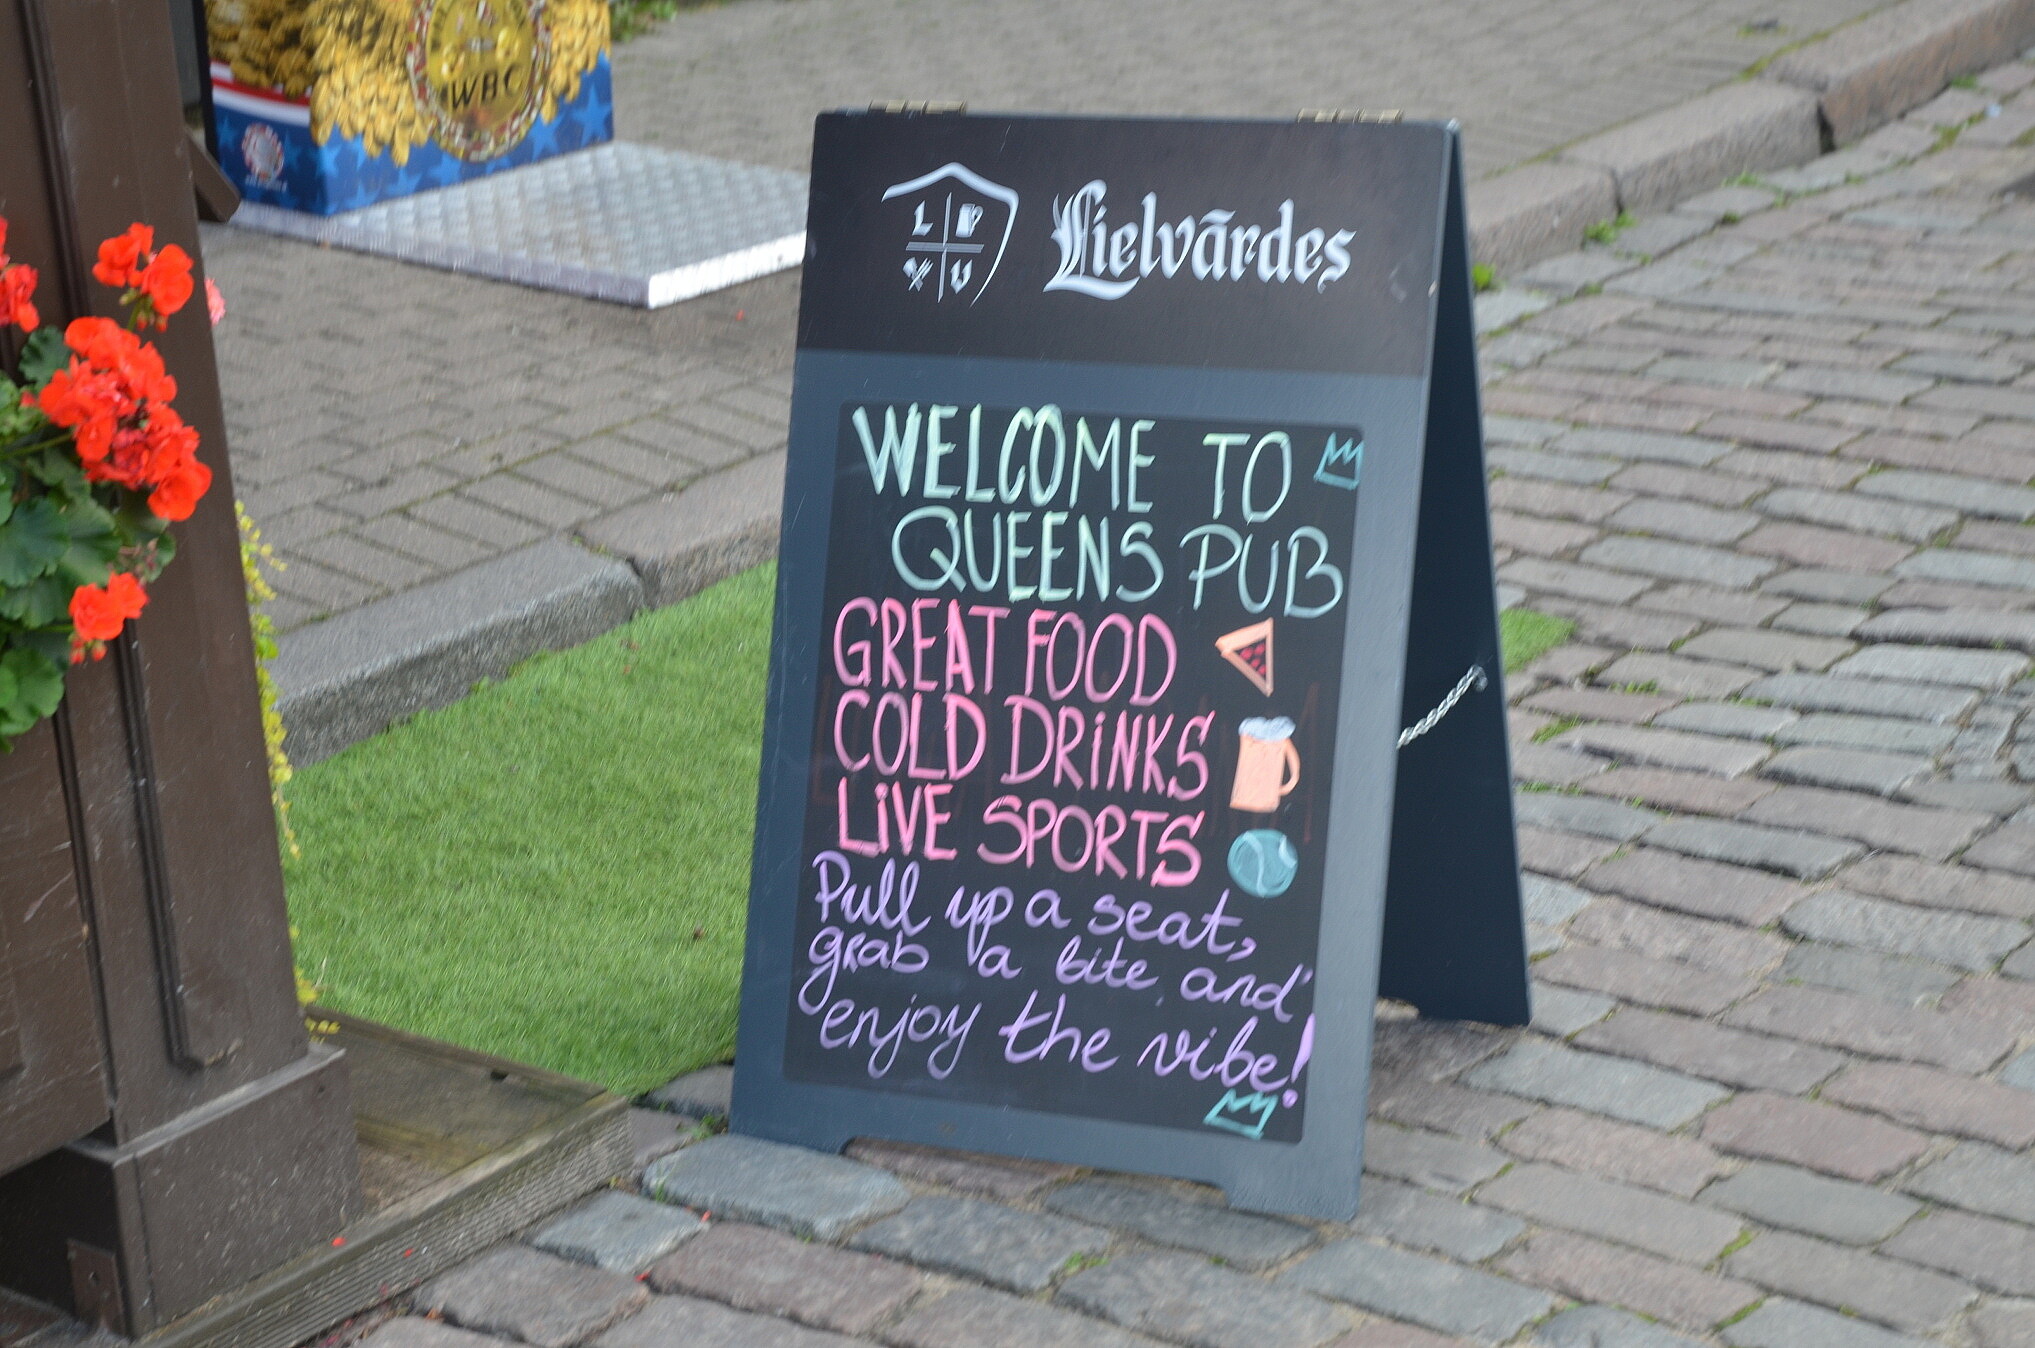 WBC
L
V
Lielvārdes
WELCOME TO
QUEENS PUB
GREAT FOOD
COLD DRiNKS
LiVE SPORTS
Pull up a seat,
grab a bite and
enjoy the vibe!